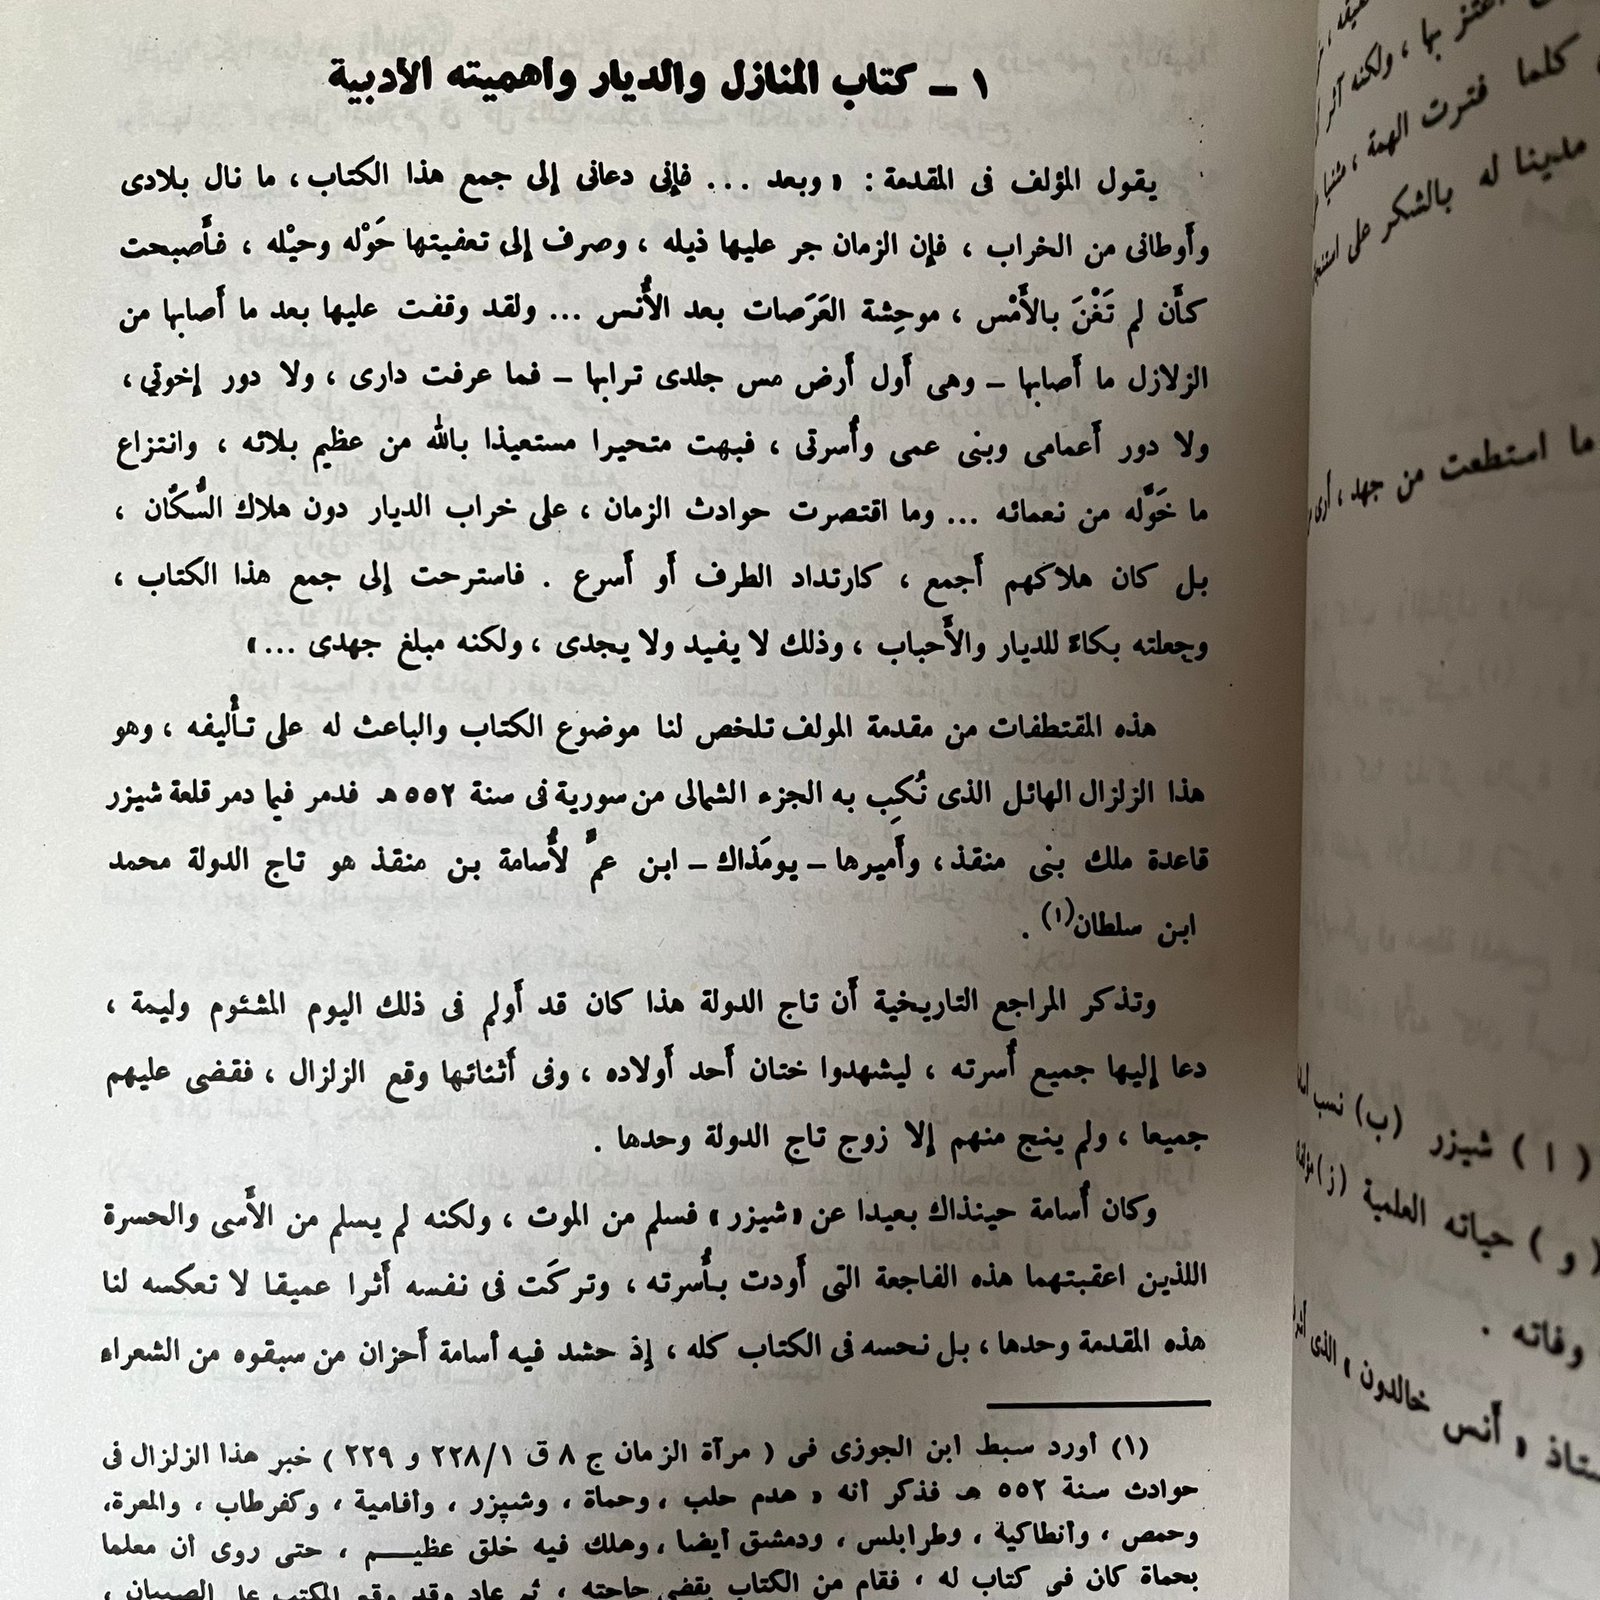 ١ – كتاب المنازل والديار وأهميته الأدبية
يقول المؤلف فى المقدمة : « وبعد ... فإنى دعانى إلى جمع هذا الكتاب ، ما نال بلادى
وأوطانى من الخراب ، فإن الزمان جر عليها ذيله ، وصرف إلى تعفيتها حَوْله وحيْله ، فأصبحت
كأن لم تَغْنَ بالأَمْس ، موحِشة العَرَصات بعد الأُنس ... ولقد وقفت عليها بعد ما أصابها من
الزلازل ما أصابها – وهى أول أرض مس جلدى ترابها – فما عرفت دارى ، ولا دور إخوتي ،
ولا دور أعمامى وبنى عمى وأُسرتى ، فبهت متحيرا مستعيذا بالله من عظيم بلائه ، وانتزاع
ما خَوَّله من نعمائه ... وما اقتصرت حوادث الزمان ، على خراب الديار دون هلاك السُّكّان ،
بل كان هلاكهم أجمع ، كارتداد الطرف أو أسرع . فاسترحت إلى جمع هذا الكتاب ،
وجعلته بكاءً للديار والأحباب ، وذلك لا يفيد ولا يجدى ، ولكنه مبلغ جهدى ... »
هذه المقتطفات من مقدمة المولف تلخص لنا موضوع الكتاب والباعث له على تأليفه ، وهو
هذا الزلزال الهائل الذى نُكِب به الجزء الشمالى من سورية فى سنة ٥٥٢ هـ فدمر فيما دمر قلعة شيزر
قاعدة ملك بنى منقذ ، وأميرها – يومَذاك – ابن عمٍّ لأُسامة بن منقذ هو تاج الدولة محمد
ابن سلطان(١) .
وتذكر المراجع التاريخية أن تاج الدولة هذا كان قد أولم فى ذلك اليوم المشئوم وليمة ،
دعا إليها جميع أُسرته ، ليشهدوا ختان أحد أولاده ، وفى أثنائها وقع الزلزال ، فقضى عليهم
جميعا ، ولم ينج منهم إلا زوج تاج الدولة وحدها .
وكان أُسامة حينذاك بعيدا عن «شيزر» فسلم من الموت ، ولكنه لم يسلم من الأسى والحسرة
اللذين اعقبتهما هذه الفاجعة التى أودت بأُسرته ، وتركَت فى نفسه أثرا عميقا لا تعكسه لنا
هذه المقدمة وحدها ، بل نحسه فى الكتاب كله ، إذ حشد فيه أسامة أحزان من سبقوه من الشعراء
(١) أورد سبط ابن الجوزى فى ( مرآة الزمان ج ٨ ق ٢٢٨/١ و ٢٢٩ ) خبر هذا الزلزال فى
حوادث سنة ٥٥٢ هـ فذكر أنه « هدم حلب ، وحماة ، وشيزر ، وأفامية ، وكفرطاب ، والمعرة،
وحمص ، وأنطاكية ، وطرابلس ، ودمشق أيضا ، وهلك فيه خلق عظيـــم ، حتى روى أن معلما
بحماة كان فى كتاب له ، فقام من الكتاب يقضى حاجته ، ثم عاد وقد وقع المكتب على الصبيان ،
اعتز بها ، ولكنه آثر
كلما فترت الهمة ،
مدينا له بالشكر على
ما استطعت من جهد ، أرى
( ا ) شيزر (ب) نسب
( و ) حياته العلمية (ز)
وفاته .
« أنس خالدون » الذى